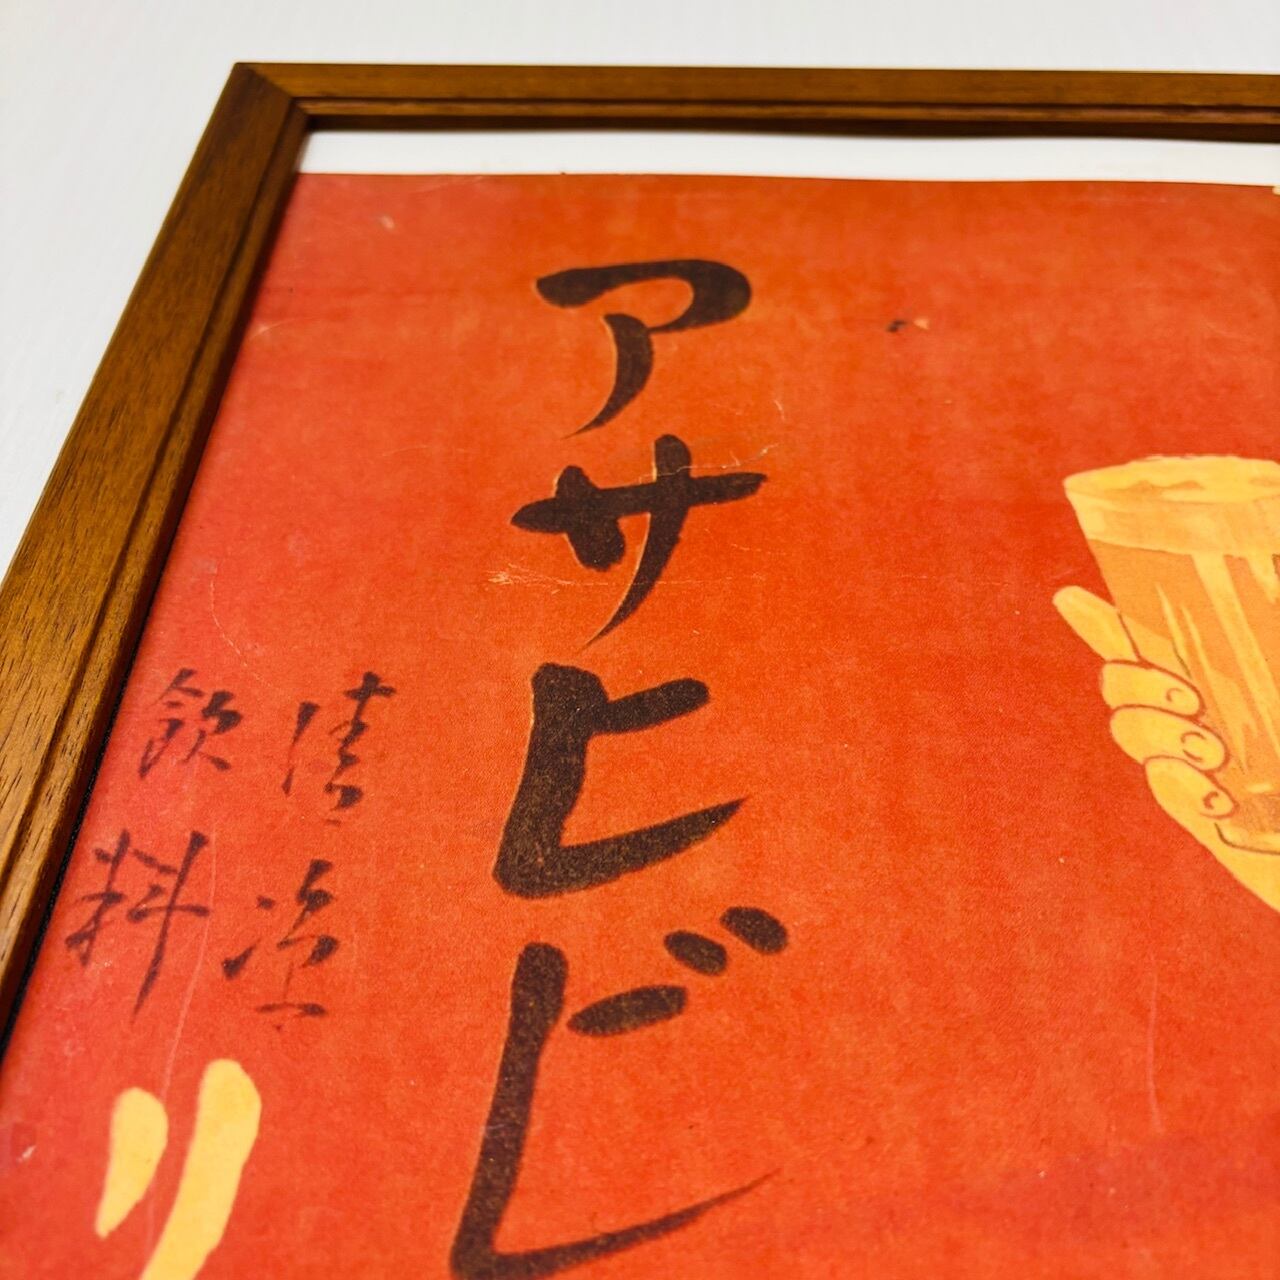 アサヒビ
清涼
飲料
リ